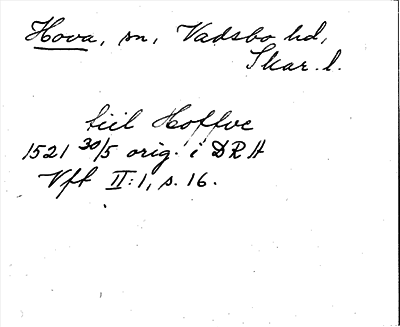 Hova, sn, Vadsbo hd,
Skar. l.
till Hoffve
1521 30/5 orig. i DRA
Vft II:1, s. 16.